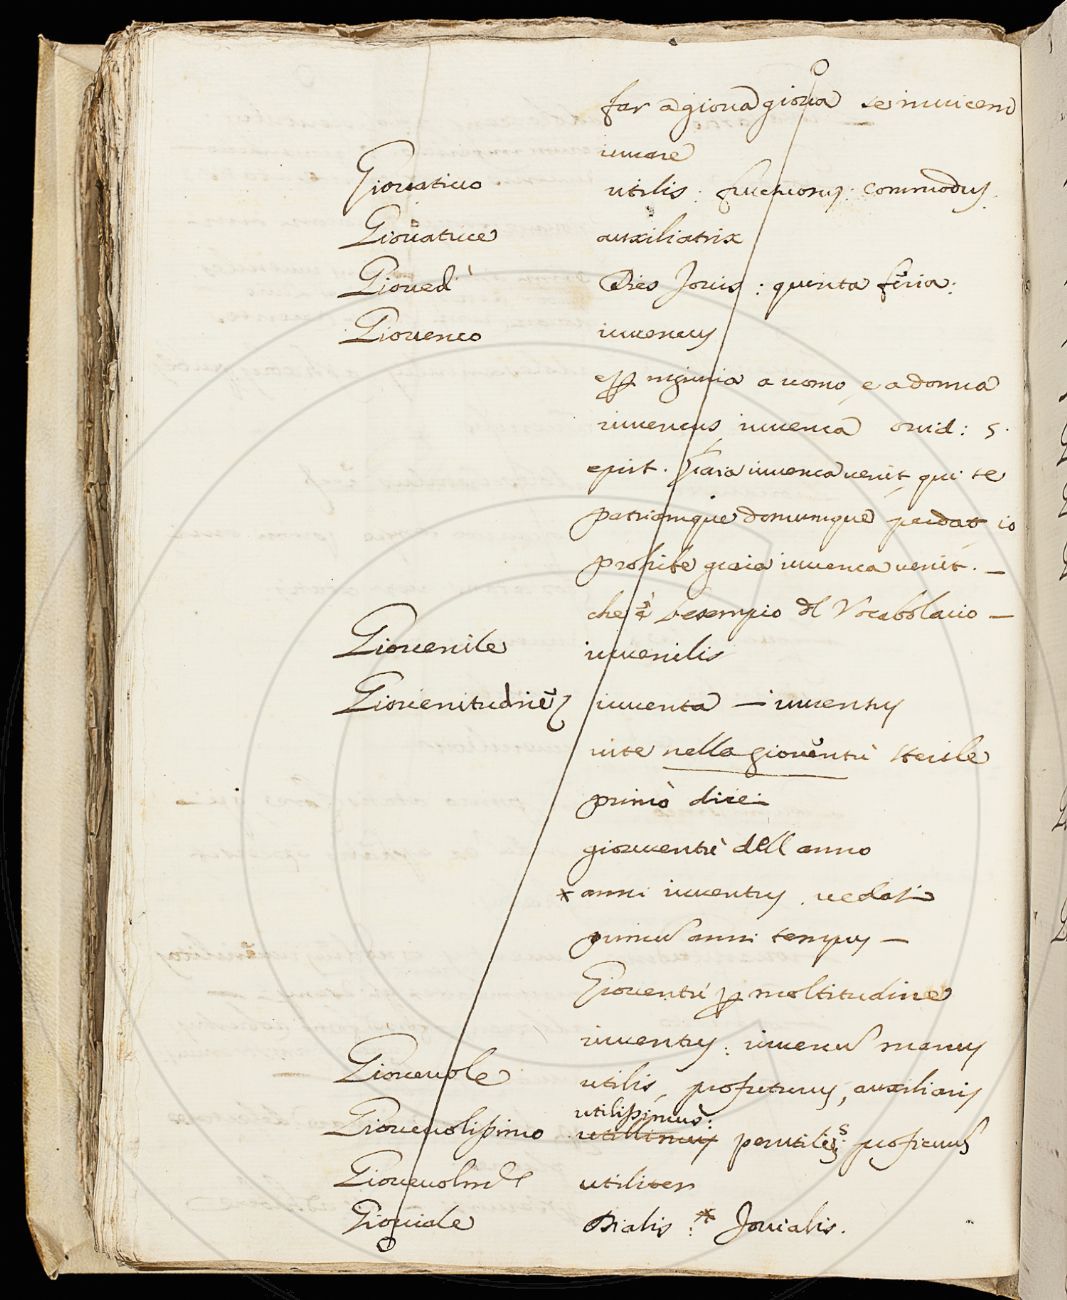 far a giova giova se invicem
iuvare
Giovativo utilis. fructuosus. commodus.
Giovatrice auxiliatrix
Giovedì Dies Jovis : quinta feria:
Giovenco iuvencus
a uomo, e a donna
iuvencus iuvenca ovid: 5.
epist. Graia iuvenca venit, qui te
patriamque domumque perdat io
prohibe graia iuvenca venit. —
che è esempio del Vocabolario —
Giovenile iuvenilis
Giovenitudine iuventa — iuventus
vite nella gioventù sterile
primo dicei
gioventù dell anno
* anni iuventus. vedasi
anni tempus —
Gioventù per moltitudine
iuventus : iuvenum manus
Giovevole utilis, profuturus, auxiliaris
utilissimus:
Giovevolissimo perutilis:
Giovevolmente utiliter
Gioviale Dialis :* Jovialis.